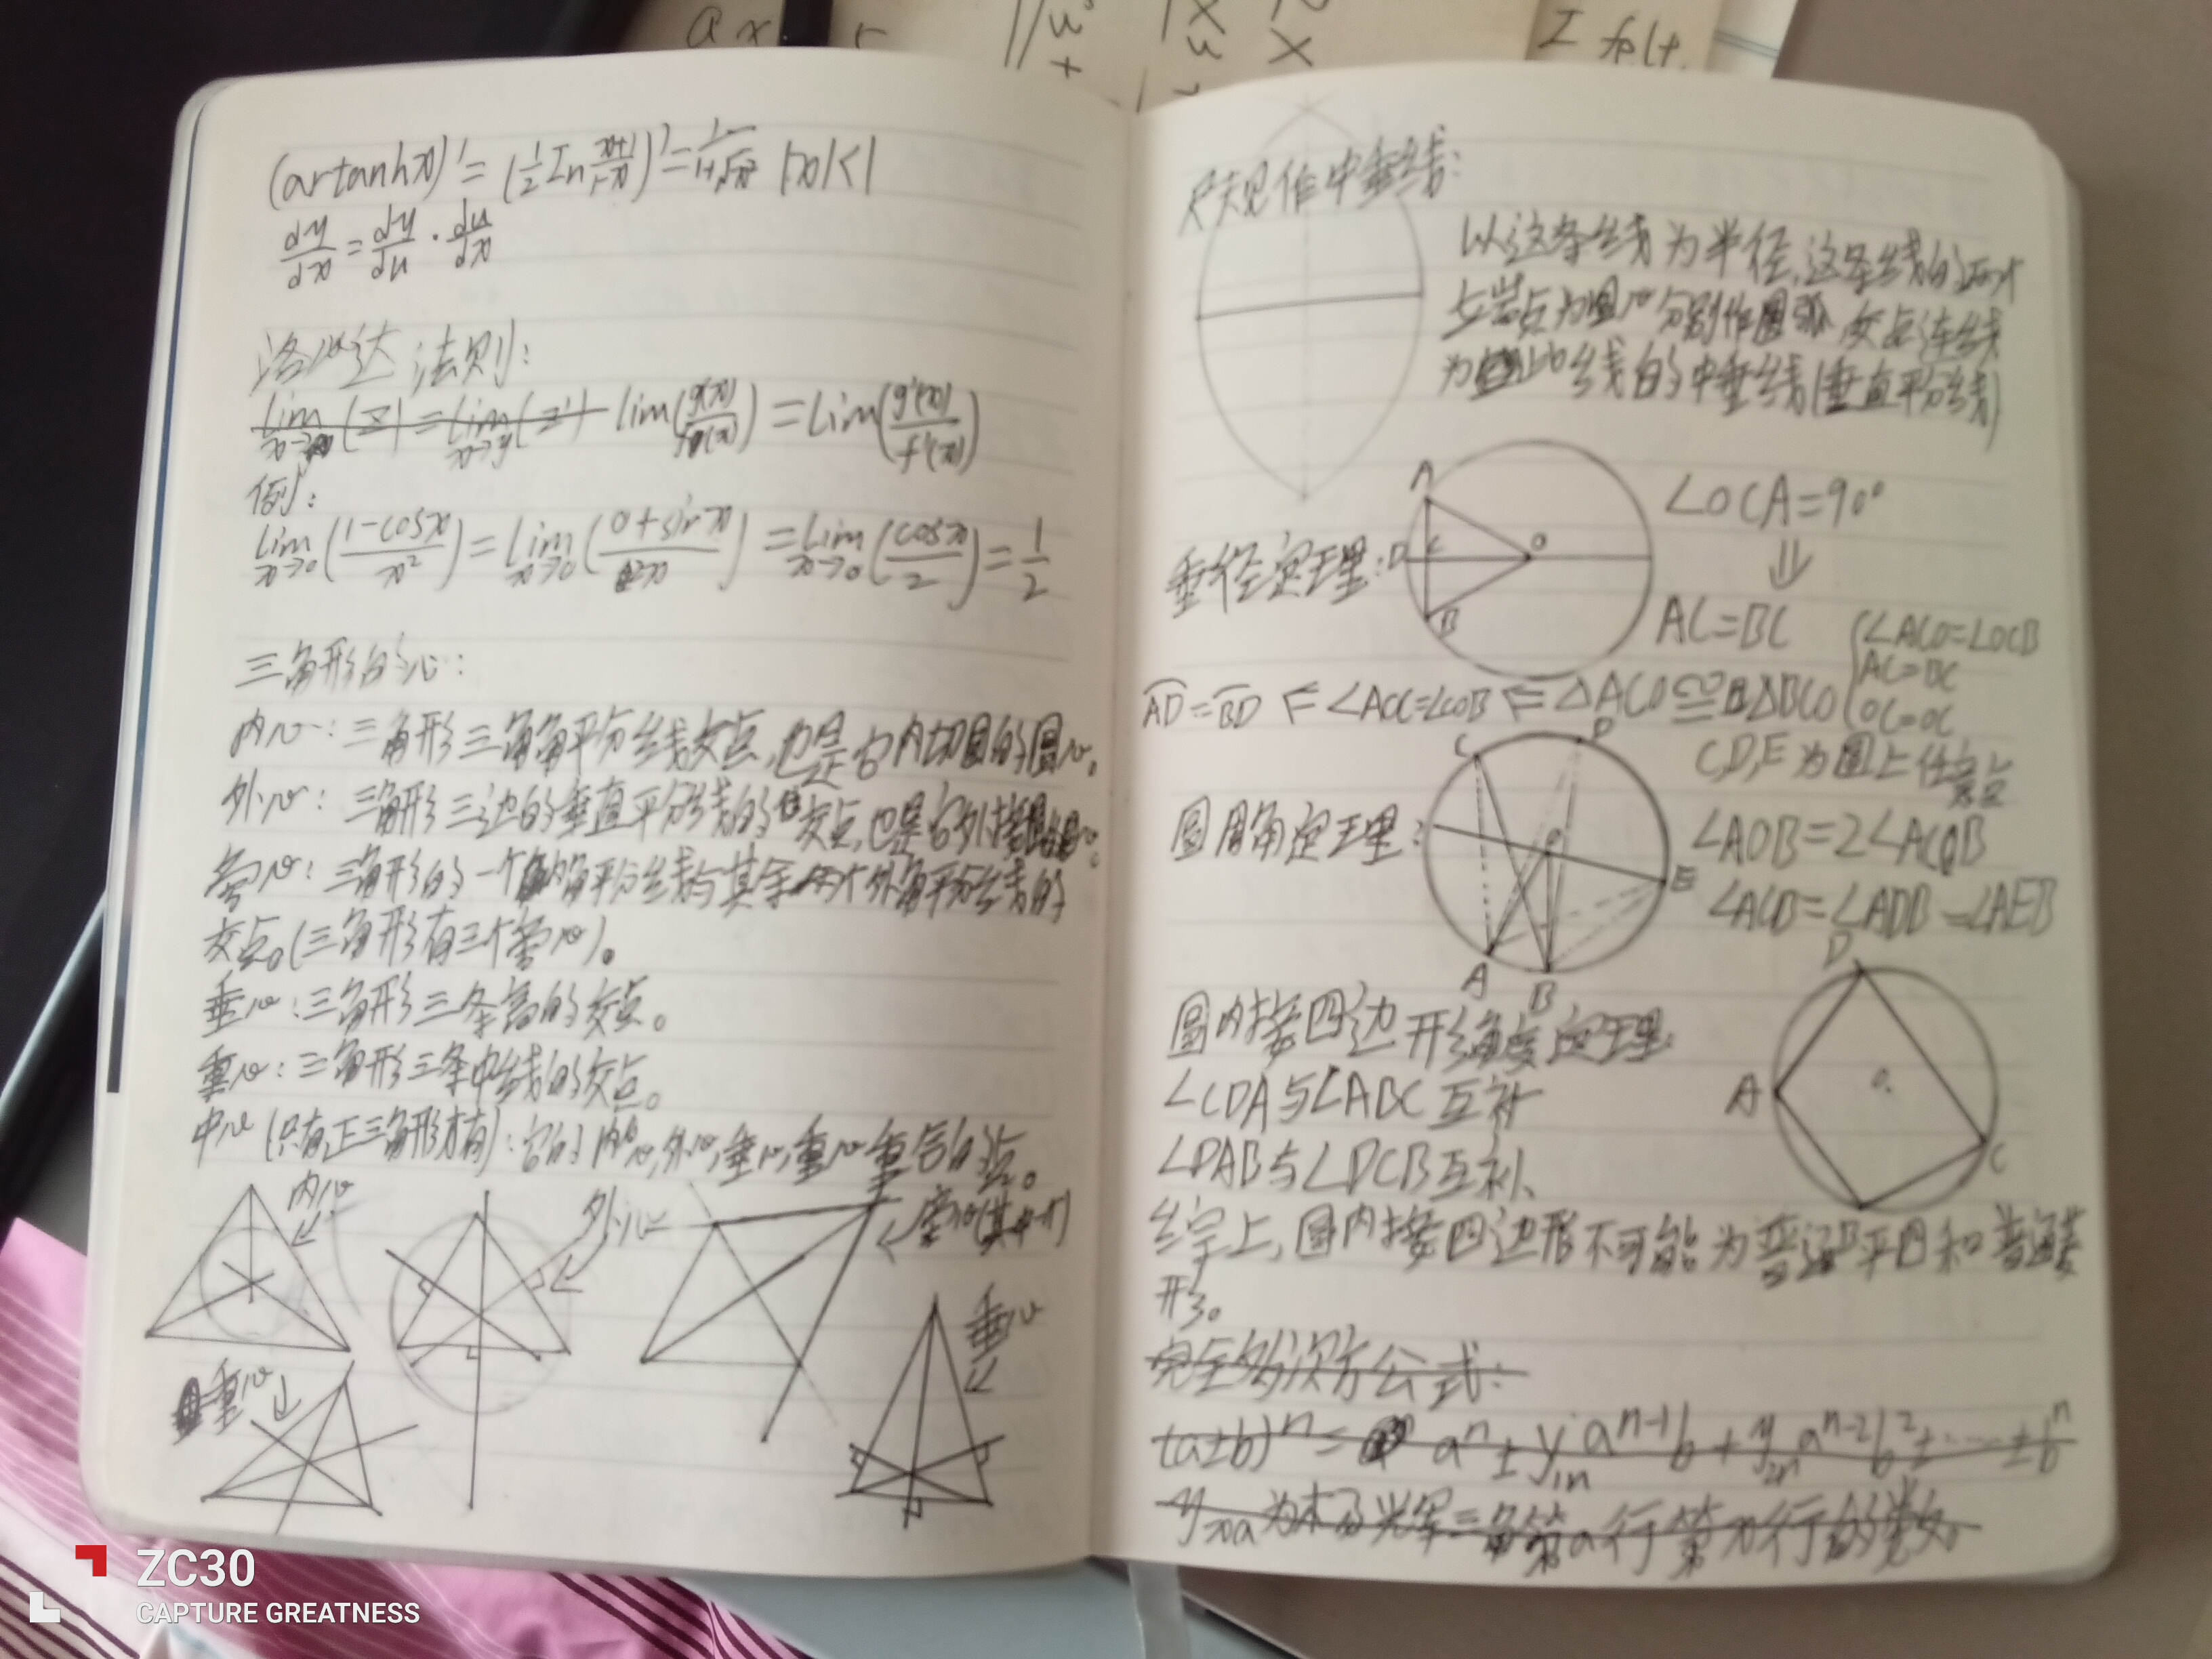 I felt.
(artanhx)' = (1/2 In x+1/1-x)' = 1/1+√x² |x|<1
dy/dx = dy/du · du/dx
洛必达法则:
lim(g(x)/f(x)) = Lim(g'(x)/f'(x))
例:
Lim x→0 (1-cosx/x²) = Lim x→0 (0+sinx/2x) = Lim x→0 (cosx/2) = 1/2
三角形的心:
内心:三角形三角角平分线交点,也是它内切圆的圆心。
外心:三角形三边的垂直平分线的交点,也是它外接圆圆心。
旁心:三角形的一个内角平分线与其余两个外角平分线的
交点。(三角形有三个旁心)。
垂心:三角形三条高的交点。
重心:三角形三条中线的交点。
中心(只有正三角形才有):它的内心,外心,垂心,重心重合的点。
内心
外心
旁心(其中一个)
垂心
重心
尺规作中垂线:
以这条线为半径,这条线的
端点为圆心分别作圆弧 交点连线
为此线的中垂线(垂直平分线)
垂径定理:
A
D
C
O
B
∠OCA=90°
⇓
AC=BC
∠ACO=∠OCB
AC=BC
OC=OC
AD=BD ⇐ ∠AOC=∠COB ⇐ △ACO≌△BCO
圆周角定理:
C
D
O
E
A
B
C,D,E为圆上任意点
∠AOB=2∠ACB
∠ACB=∠ADB=∠AEB
圆内接四边形角度定理:
∠CDA与∠ABC互补
∠DAB与∠DCB互补
D
A
O
C
B
综上,圆内接四边形不可能为普通平四和普通菱
形。
完全多次方公式:
(a±b)ⁿ = aⁿ ± y₁ₙ aⁿ⁻¹b + y₂ₙ aⁿ⁻²b² ± …… ± bⁿ
yₓₐ为杨辉三角第a行第x行的数。
ZC30
CAPTURE GREATNESS